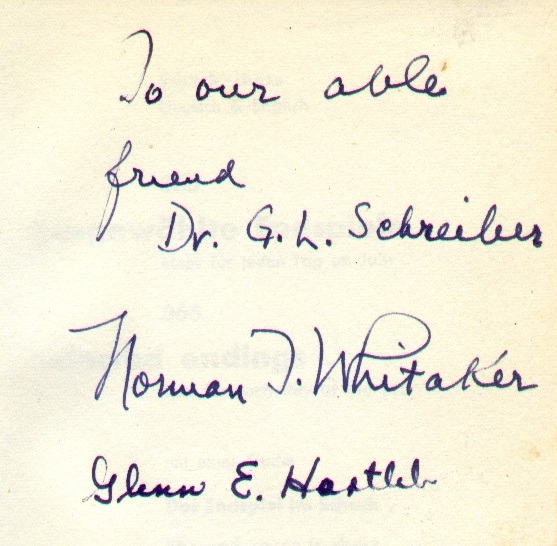 To our able
friend
Dr. G. L. Schreiber
Norman T. Whitaker
Glenn E. Hartleb
365